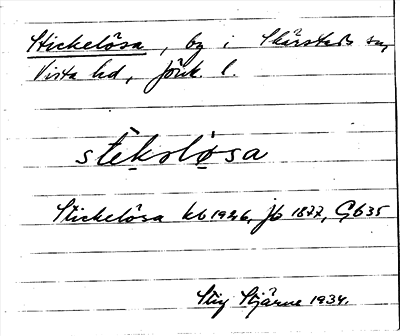 Stickelösa, by i Skärstads sn,
Vista hd, Jönk. l.
stèkslò̩sa
Stickelösa kb 1926, jb 1877, Gb 35
Stig Stjärne 1934.